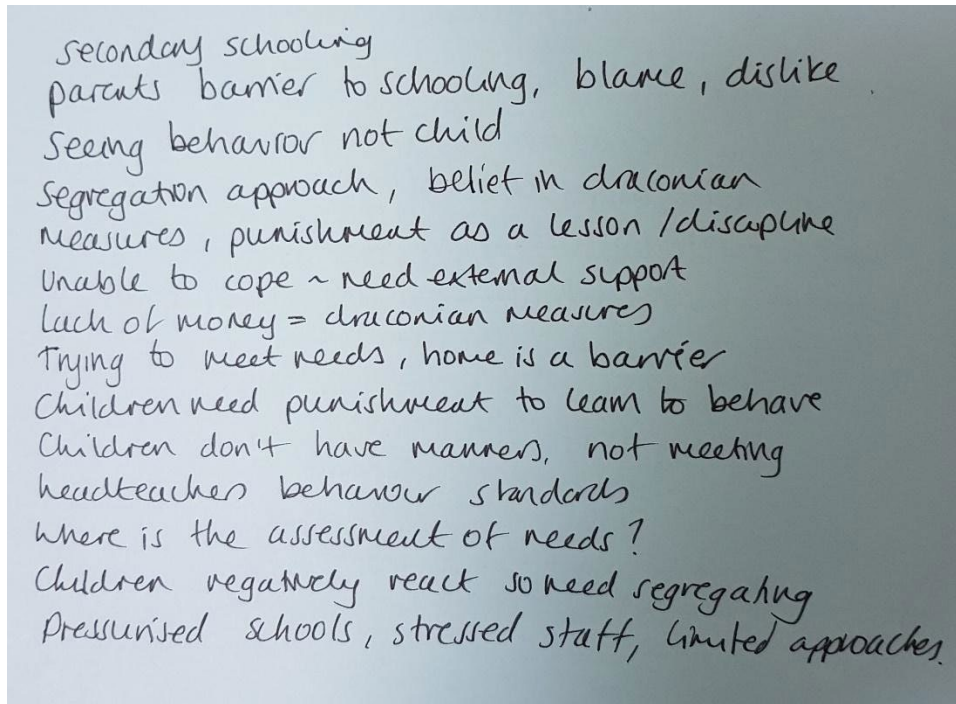 Secondary schooling
parents barrier to schooling, blame, dislike
Seeing behavior not child
Segregation approach, belief in draconian
measures, punishment as a lesson / discipline
Unable to cope ~ need external support
Lack of money = draconian measures
Trying to meet needs, home is a barrier
Children need punishment to learn to behave
Children don't have manners, not meeting
headteachers behaviour standards
Where is the assessment of needs?
Children negatively react so need segregating
Pressurised schools, stressed staff, limited approaches.